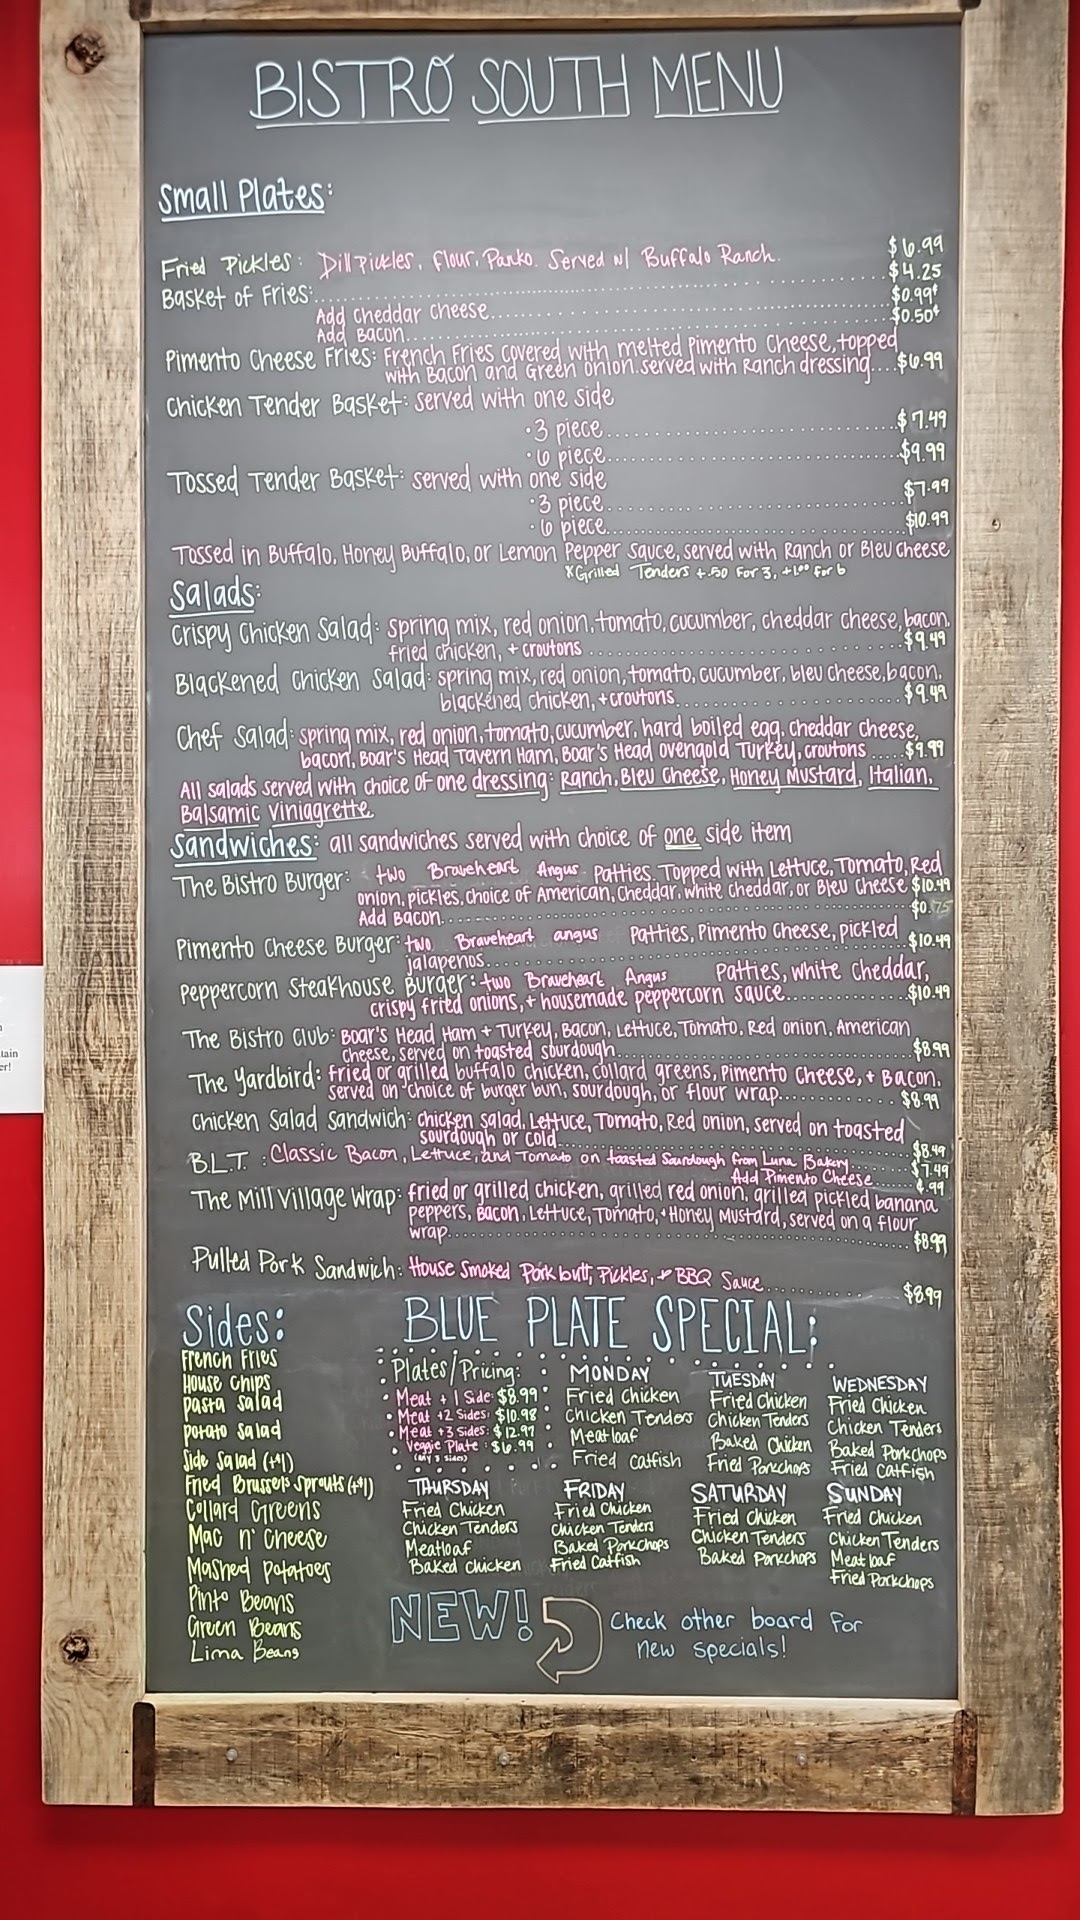 BISTRO SOUTH MENU
Small Plates:
Fried Pickles: Dill Pickles, Flour, Panko. Served w/ Buffalo Ranch. $6.99
Basket of Fries: $4.25
Add Cheddar Cheese $0.99¢
Add Bacon $0.50¢
Pimento Cheese Fries: French Fries covered with melted Pimento Cheese, topped
with Bacon and Green Onion. served with Ranch dressing.... $6.99
Chicken Tender Basket: served with one side
• 3 piece $7.49
• 6 piece $9.99
Tossed Tender Basket: served with one side
• 3 piece $7.99
• 6 piece $10.99
Tossed in Buffalo, Honey Buffalo, or Lemon Pepper Sauce, served with Ranch or Bleu cheese
*Grilled Tenders +.50 for 3, +1.00 for 6
Salads:
Crispy Chicken Salad: spring mix, red onion, tomato, cucumber, cheddar cheese, bacon,
fried chicken, + croutons $9.49
Blackened Chicken Salad: spring mix, red onion, tomato, cucumber, bleu cheese, bacon,
blackened chicken, + croutons $9.49
Chef Salad: spring mix, red onion, tomato, cucumber, hard boiled egg, cheddar cheese,
bacon, Boar's Head Tavern Ham, Boar's Head ovengold Turkey, croutons ..... $9.99
All salads served with choice of one dressing: Ranch, Bleu Cheese, Honey Mustard, Italian,
Balsamic Viniagrette
Sandwiches: all sandwiches served with choice of one side item
The Bistro Burger: two Braveheart Angus Patties. Topped with Lettuce, Tomato, Red
onion, pickles, choice of American, Cheddar, white cheddar, or Bleu Cheese $10.49
Add Bacon $0.75
Pimento Cheese Burger: two Braveheart angus Patties, Pimento Cheese, pickled
jalapenos $10.49
Peppercorn Steakhouse Burger: two Braveheart Angus Patties, white Cheddar,
crispy fried onions, + housemade peppercorn sauce $10.49
The Bistro Club: Boar's Head Ham + Turkey, Bacon, Lettuce, Tomato, Red onion, American
cheese, served on toasted sourdough $8.99
The Yardbird: fried or grilled buffalo chicken, collard greens, Pimento Cheese, + Bacon.
served on choice of burger bun, sourdough, or flour wrap $8.99
Chicken Salad Sandwich: chicken salad, Lettuce, Tomato, Red onion, served on toasted
sourdough or cold $8.49
B.L.T. : Classic Bacon, Lettuce, and Tomato on toasted Sourdough from Luna Bakery $7.49
Add Pimento Cheese .99
The Mill Village Wrap: fried or grilled chicken, grilled red onion, grilled pickled banana
peppers, Bacon, Lettuce, Tomato, + Honey Mustard, served on a flour
wrap $8.99
Pulled Pork Sandwich: House Smoked Pork butt, Pickles, + BBQ Sauce $8.99
Sides:
French Fries
House Chips
Pasta Salad
Potato Salad
Side Salad (+$1)
Fried Brussels Sprouts (+$1)
Collard Greens
Mac n' Cheese
Mashed Potatoes
Pinto Beans
Green Beans
Lima Beans
BLUE PLATE SPECIAL:
Plates/Pricing:
• Meat + 1 Side: $8.99
• Meat +2 Sides: $10.98
• Meat +3 Sides: $12.97
• Veggie Plate: $6.99
(Any 3 Sides)
MONDAY
Fried Chicken
Chicken Tenders
Meatloaf
Fried Catfish
TUESDAY
Fried Chicken
Chicken Tenders
Baked Chicken
Fried Porkchops
WEDNESDAY
Fried Chicken
Chicken Tenders
Baked Porkchops
Fried Catfish
THURSDAY
Fried Chicken
Chicken Tenders
Meatloaf
Baked Chicken
FRIDAY
Fried Chicken
Chicken Tenders
Baked Porkchops
Fried Catfish
SATURDAY
Fried Chicken
Chicken Tenders
Baked Porkchops
SUNDAY
Fried Chicken
Chicken Tenders
Meatloaf
Fried Porkchops
NEW!
Check other board for
new specials!